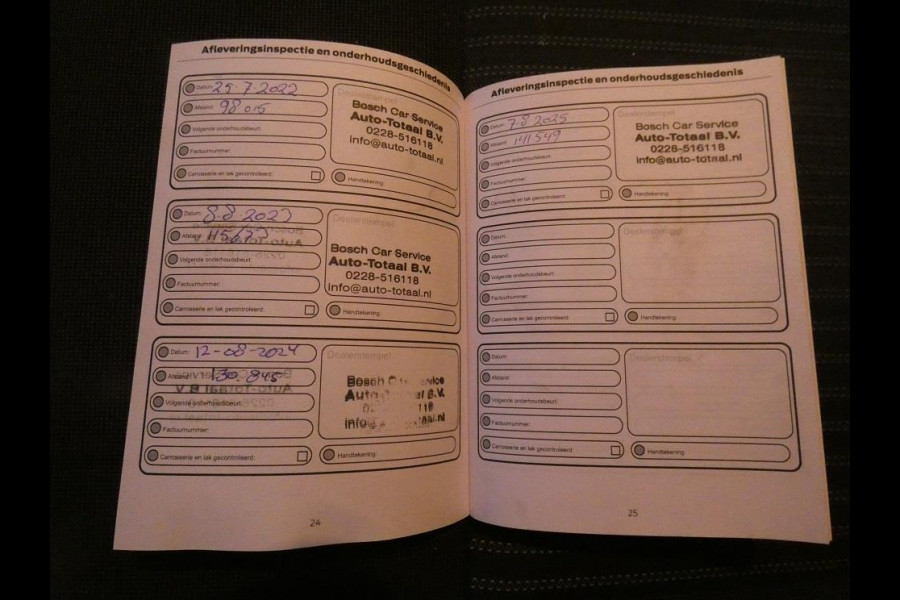 Afleveringsinspectie en onderhoudsgeschiedenis
Datum: 25-7-2022
Afstand: 98.015
Volgende onderhoudsbeurt:
Factuurnummer:
Carrosserie en lak gecontroleerd:
Dealerstempel
Bosch Car Service
Auto-Totaal B.V.
0228-516118
info@auto-totaal.nl
Handtekening:
Datum: 8-8-2023
Afstand:
Volgende onderhoudsbeurt:
Factuurnummer:
Carrosserie en lak gecontroleerd:
Dealerstempel
Bosch Car Service
Auto-Totaal B.V.
0228-516118
info@auto-totaal.nl
Handtekening:
Datum: 12-08-2024
Afstand: 130.845
Volgende onderhoudsbeurt:
Factuurnummer:
Carrosserie en lak gecontroleerd:
Dealerstempel
Bosch
Handtekening:
24
Afleveringsinspectie en onderhoudsgeschiedenis
Datum: 7-8-2025
Afstand: 141549
Volgende onderhoudsbeurt:
Factuurnummer:
Carrosserie en lak gecontroleerd:
Dealerstempel
Bosch Car Service
Auto-Totaal B.V.
0228-516118
info@auto-totaal.nl
Handtekening:
Datum:
Afstand:
Volgende onderhoudsbeurt:
Factuurnummer:
Carrosserie en lak gecontroleerd:
Dealerstempel
Handtekening:
Datum:
Afstand:
Volgende onderhoudsbeurt:
Factuurnummer:
Carrosserie en lak gecontroleerd:
Dealerstempel
Handtekening:
25